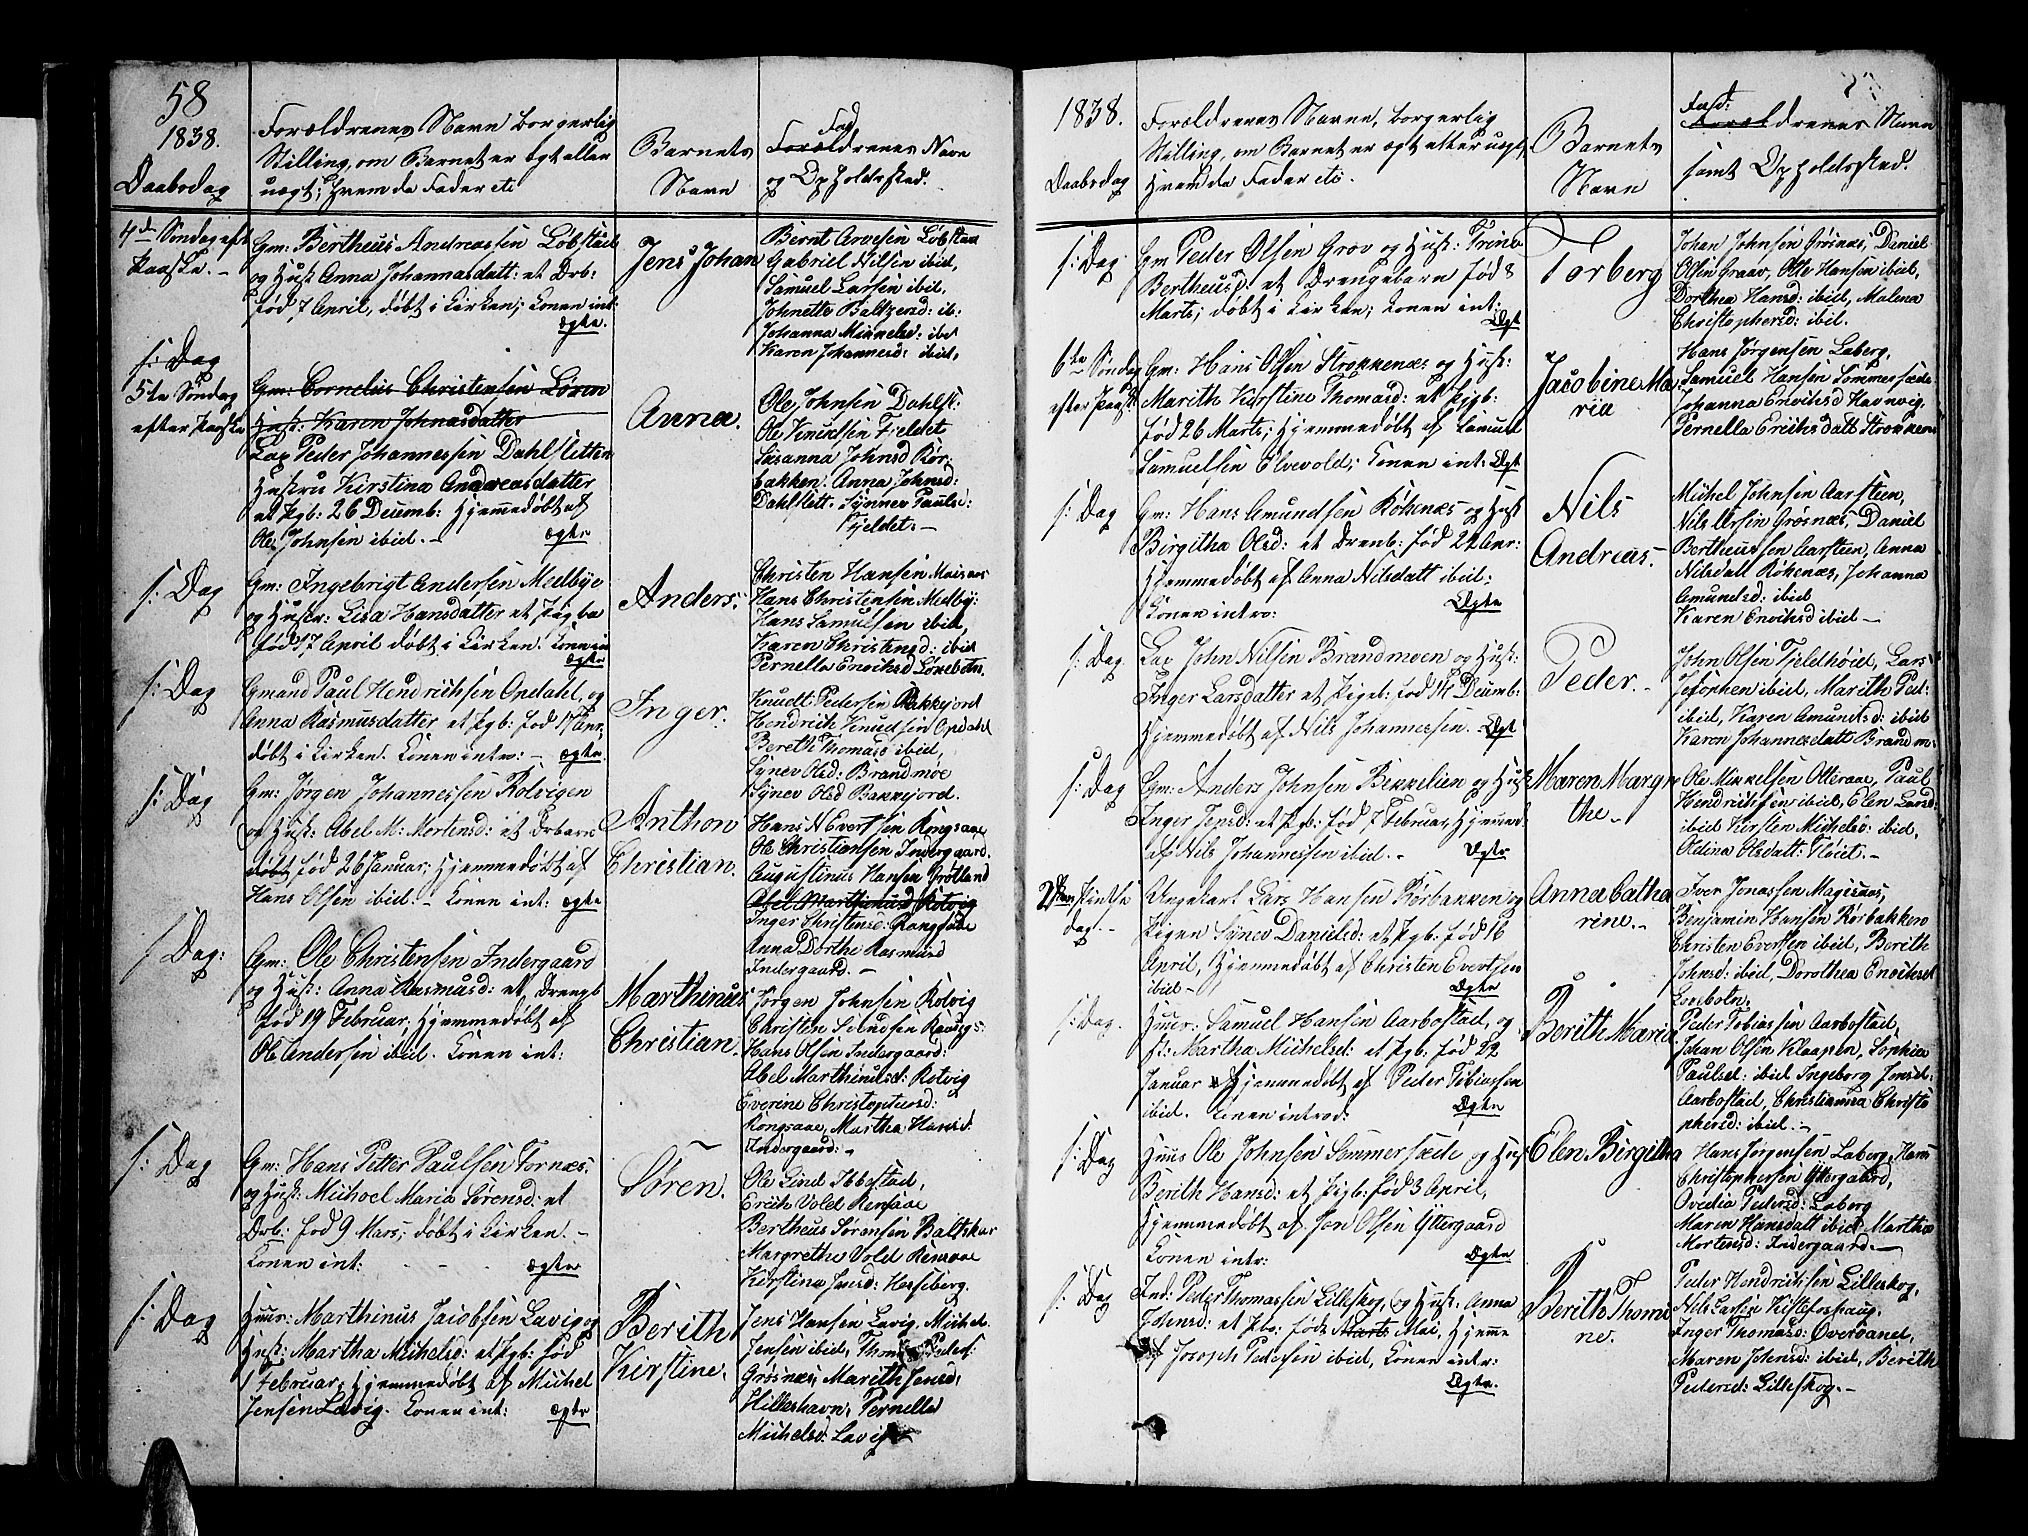 58
1838.
Daabsdag
Forældrenes Navn borgerlig
Stilling, om Barnet er ægt eller
uægt; hvem da Fader etc
Barnets
Navn
Fad
Forældrenes Navn
og Opholdssted.
4de Søndag eft
Paaske. -
Gm: Bertheus Andreassen Løbstad
og Hust Anna Johannasdatt: et Drb-
fød 7 April, døbt i Kirken; Konen int:
ægte.
Jens Johan
Bernt Arvesen Løbstad
Gabriel Nilsen ibid,
Samuel Larsen ibid,
Johnette Baltzersd: ib:
Johanna Minnelsd: ibd
Karen Johannesd: ibid,
s: Dag
5te Søndag
efter Paaske
Gm: Cornelius Christensen Løvin
Hust: Karen Johnasdatter
Lap Peder Johannessen Dahlsletten
Hustru Kirstina Andreasdatter
et Pgb: 26 Decemb: Hjemmedøbt af
Ole Johnsen ibid. - ægte
Anna.
Ole Johnsen Dahlsl:
Ole Knudsen Fjeldet
Susanna Johnsd Rør:
bakken. Anna Johnsd:
Dahlslett. Synnev Paulsd:
Fjeldet. -
s: Dag
Gm: Ingebrigt Andersen Medbye
og Hustr: Lisa Hansdatter et Pigba
fød 17 April døbt i Kirken. Konen in
ægte
Anders.
Christen Hansen
Hans Christensen Medby:
Hans Samuelsen ibid,
Karen Christensd: ibid
Pernella Enoksd
s: Dag
Gmand Paul Hendrichsen Opdahl, og
Anna Rasmusdatter et Pgb: fød 17 Apr.
døbt i Kirken. Konen intro: - ægte.
Inger.
Knudt Pedersen Bakkejord
Hendrich Knudsen Opdahl
Bereth Thomasd ibid,
Synev Olsd: Brandmoe
Synev Olsd Bakkejord.
s: Dag
Gm: Jørgen Johannessen Rotvigen
og Hust: Abel M: Mortensd: et Drbarn
døbt fød 26 Januar; Hjemmedøbt af
Hans Olsen ibid. - Konen int: ægte
Anthon
Christian.
Hans N Evertsen Kongsaae
Ole Christiansen Indergaard.
Augustinus Hansen Grøtland
Abel Marthinusd Rotvig
Inger Christensd: Rongsaae
Anna Dorthe Rasmusd
Indergaard. -
s Dag:
Gm: Ole Christensen Indergaard
og Hust: Anna Rasmusd: et Drengb
fød 19 Februar, Hjemmedøbt af
Ole Andersen ibid. Konen int:
Marthinus
Christian.
Jørgen Johnsen Rotvig
Christen
Hans Olsen Indergaard:
Abel Marthinusd: Rotvig
Everine Christophersd:
Kongsaae, Martha Hansd:
Indergaard: -
s: Dag
Gm: Hans Petter Paulsen Fornæs:
og Hust: Michoel Maria Sørensd: et
Drb: fød 9 Mars; døbt i Kirken. -
Konen int: - - - ægte
Søren.
Ole Lind Ibbestad,
Erich Vold Rensaae
Bertheus Sørensen Baltskar
Margrethe Vold Rensaae
Kirstina Jensd: Hesseberg.
s: Dag
Huur: Marthinus Jacobsen Lavig og
Hust: Martha Michelsd: et Pgb: fød
1 Februar, Hjemmedøbt af Michel
Jensen Lavig. Konen int: ægte
Berith
Kirstine.
Jens Hansen Lavig. Michel
Jensen ibid, Peders:
Grøsnæs Marith Jensd:
Hilleshavn, Pernella
Michelsd: Lavig
1838.
Daabsdag
Forældrenes Navne, borgerlig
Stilling, om Barnet er ægt eller uægt,
hvem da Fader etc.
Barnets
Navn
Fad:
Forældrenes Navn
samt Opholdssted.
s: Dag
Gm Peder Olsen Grov og Hust: Trina
Bertheusd: et Drengebarn fød 8
Marts; døbt i Kirken; Konen int:
Ægte
Torberg
Johan Johnsen Grøsnæs, Daniel
Olsen Graav, Otte Hansen ibid,
Dorthea Hansd: ibid, Malena
Christophersd: ibid.
6te Søndag
efter Paaske
Gm: Hans Olsen Strokkenæs og Hust:
Marith Kirstine Thomasd: et Pgb:
fød 26 Marts; Hjemmedøbt af Samuel
Samuelsen Elvevold; Konen int: Ægte
Jacobine Ma
ria
Hans Jørgensen Laberg,
Samuel Hansen Sommersæde
Johanna Enochsd Havnvig,
Pernella Erichsdatt Strokken
s: Dag
Gm: Hans Amundsen Røkenæs og Hust
Birgitha Olsd: et Drenb: fød 22 Apr:
Hjemmedøbt af Anna Nilsdatt ibid:
Konen intro: Ægte
Nils
Andreas.
Michel Johnsen Aarsteen,
Nils Grøsnæs, Daniel
Bertheussen Aarsteen, Anna
Nilsdatt Røkenæs, Johanna
Amundsd: ibid
Karen Enoksd ibid -
s: Dag.
Lap John Nilsen Brandmoen og Hust:
Inger Larsdatter et Pigb: fød 14 Decemb:
Hjemmedøbt af Nils Johannessen. Ægt
Peder. -
John Olsen Fjeldhøid, Lars
Josephen ibid, Marith Ped:
ibid, Karen Amundsd: ibid
Karen Johannesdatt Brandm:
s: Dag
Gm: Anders Johnsen Bekkelien og Hust
Inger Jensd: et Pgb: fød 7 Februar, Hjemmed
af Nils Johannessen ibid. - Ægte
Maren Margre
the. -
Ole Mikkelsen Otteraae, Paul
Hendrichsen ibid, Elen Larsd:
ibid Kirsten Michelsd: ibid,
Oldina Olsdatt: Fløiet. -
2den Pintse
dag. -
Ungekarl Lars Hansen Rørbakken og
Pigen Synev Danielsd: et Pgb: fød 16
April, Hjemmedøbt af Christen Evertsen
ibid - Ægte
Anna Catha
rine. -
Iver Jonassen Magisnæs,
Binjamin Hansen Rørbakken
Christen Evertsen ibid, Berith
Johnsd: ibid, Dorothea Enochsd
Løvebotn,
s: Dag.
Huur: Samuel Hansen Aarbostad, og
H: Martha Michelsd: et Pgb: fød 22
Januar Hjemmedøbt af Peder Tobiassen
ibid. Konen introd: Ægte
Berith Maria
Peder Tobiassen Aarbostad,
Johan Olsen Klaapen, Sophia
Paulsd: ibid Ingeborg Jensd:
Aarbostad, Christianna Christo
phersd: ibid. -
s: Dag
Huus Ole Johnsen Sommersæde og Hust
Berith Hansd: et Pigb: fød 3 April,
Hjemmedøbt af Jon Olsen Yttergaard
Konen intr: Ægte
Elen Birgitha
Hans Jørgensen Laberg, Hans
Christophersen Yttergaard,
Ovedia Pedersd: Laberg
Maren Hansdatt ibid Martha
Mortensd: Indergaard. -
s: Dag
Ind: Peder Thomassen Lilleskog, og Hust: Anna
Johnsd: et Pbo: fød 2 Marts Mai, Hjemme
af Joseph Pedersen ibid, Konen intr:
Ægte.
Berith Thomi
ne.
Peder Hendrichsen Lilleskog,
Nils Larsen Kistefoshaug,
Inger Thomasd: Overvand,
Maren Johnsd: ibid, Berith
Pedersd: Lilleskog. -